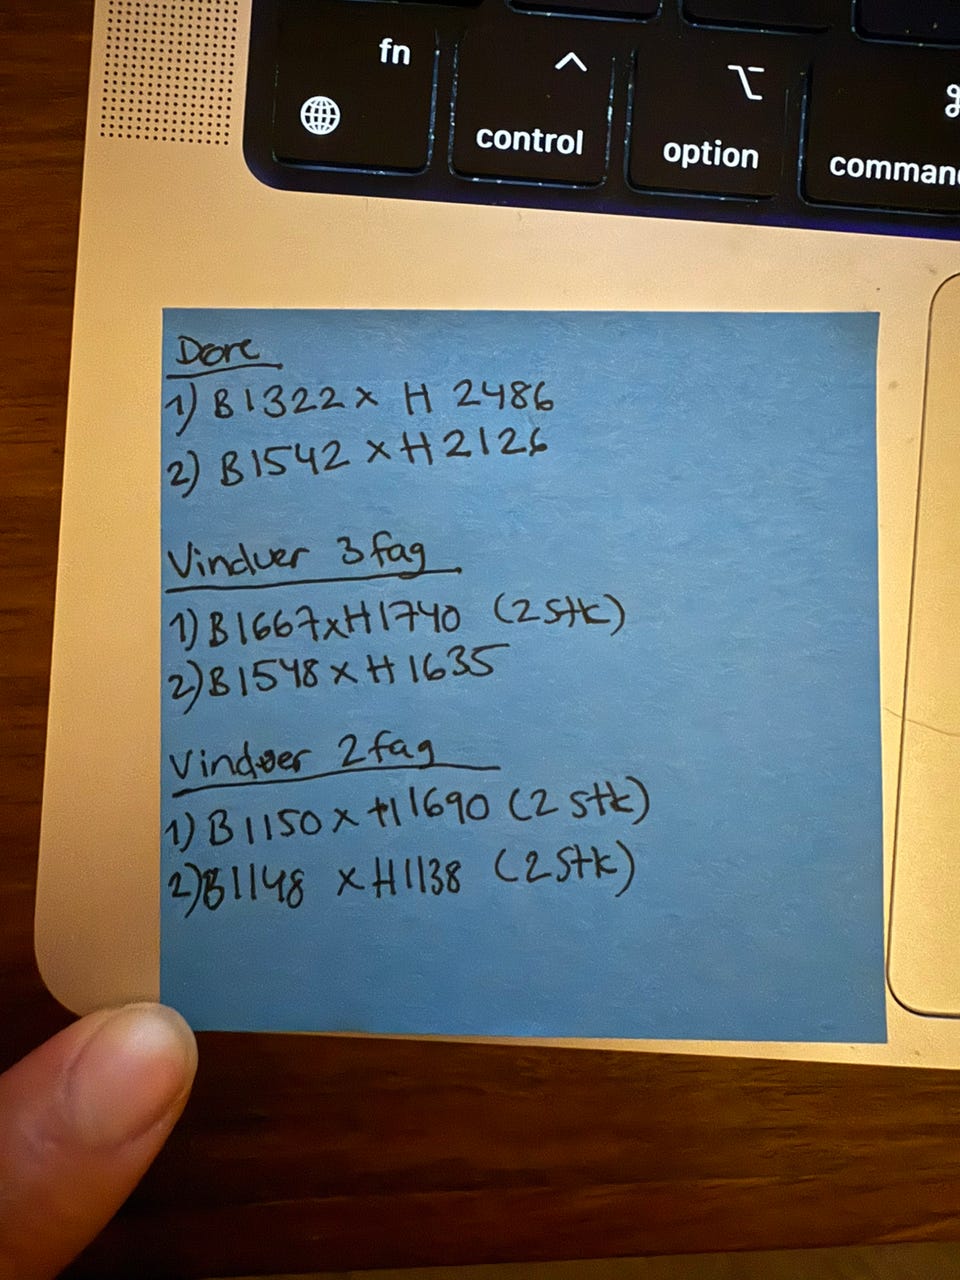 fn
control
option
command
Døre
1) B1322 x H 2486
2) B1542 x H2126
Vinduer 3 fag
1) B1667xH1740 (2 stk)
2) B1548 x H 1635
Vinduer 2 fag
1) B1150 x H1690 (2 stk)
2) B1148 x H1138 (2 stk)